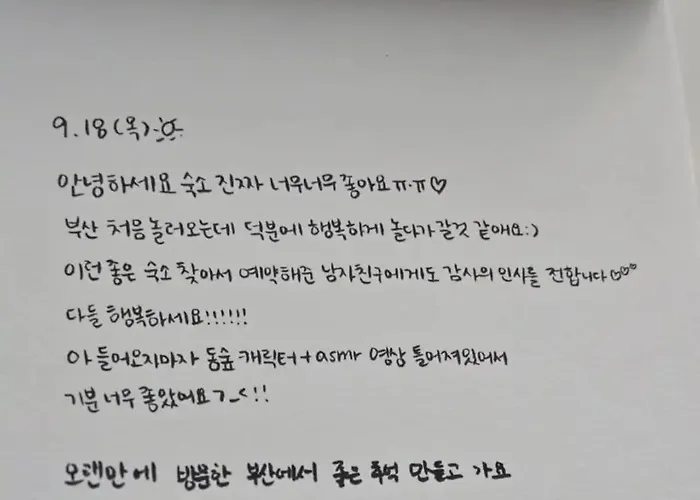 9.18(목)
안녕하세요 숙소 진짜 너무너무 좋아요ㅠ.ㅠ♡
부산 처음 놀러오는데 덕분에 행복하게 놀다가갈것 같애요:)
이런 좋은 숙소 찾아서 예약해준 남자친구에게도 감사의 인사를 전합니다♡♡♡
다들 행복하세요!!!!!!
아 들어오자마자 동숲 캐릭터+asmr 영상 틀어져있어서
기분 너무 좋았어요ㄱ_<!!
오랜만에 방문한 부산에서 좋은 추억 만들고 가요